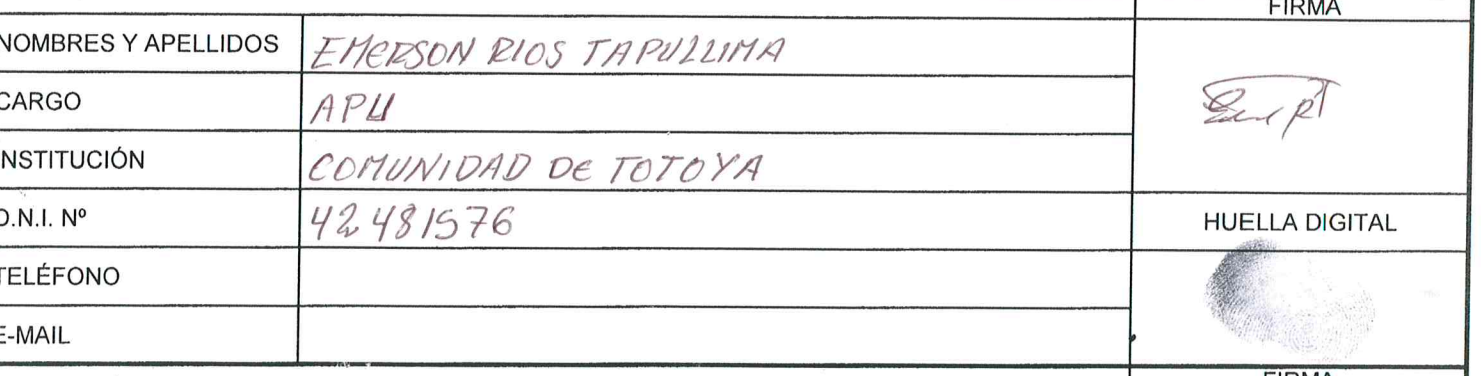 FIRMA
NOMBRES Y APELLIDOS EMERSON RIOS TAPULLIMA
CARGO APU
INSTITUCIÓN COMUNIDAD DE TOTOYA
D.N.I. Nº 42481576
HUELLA DIGITAL
TELÉFONO
E-MAIL
FIRMA